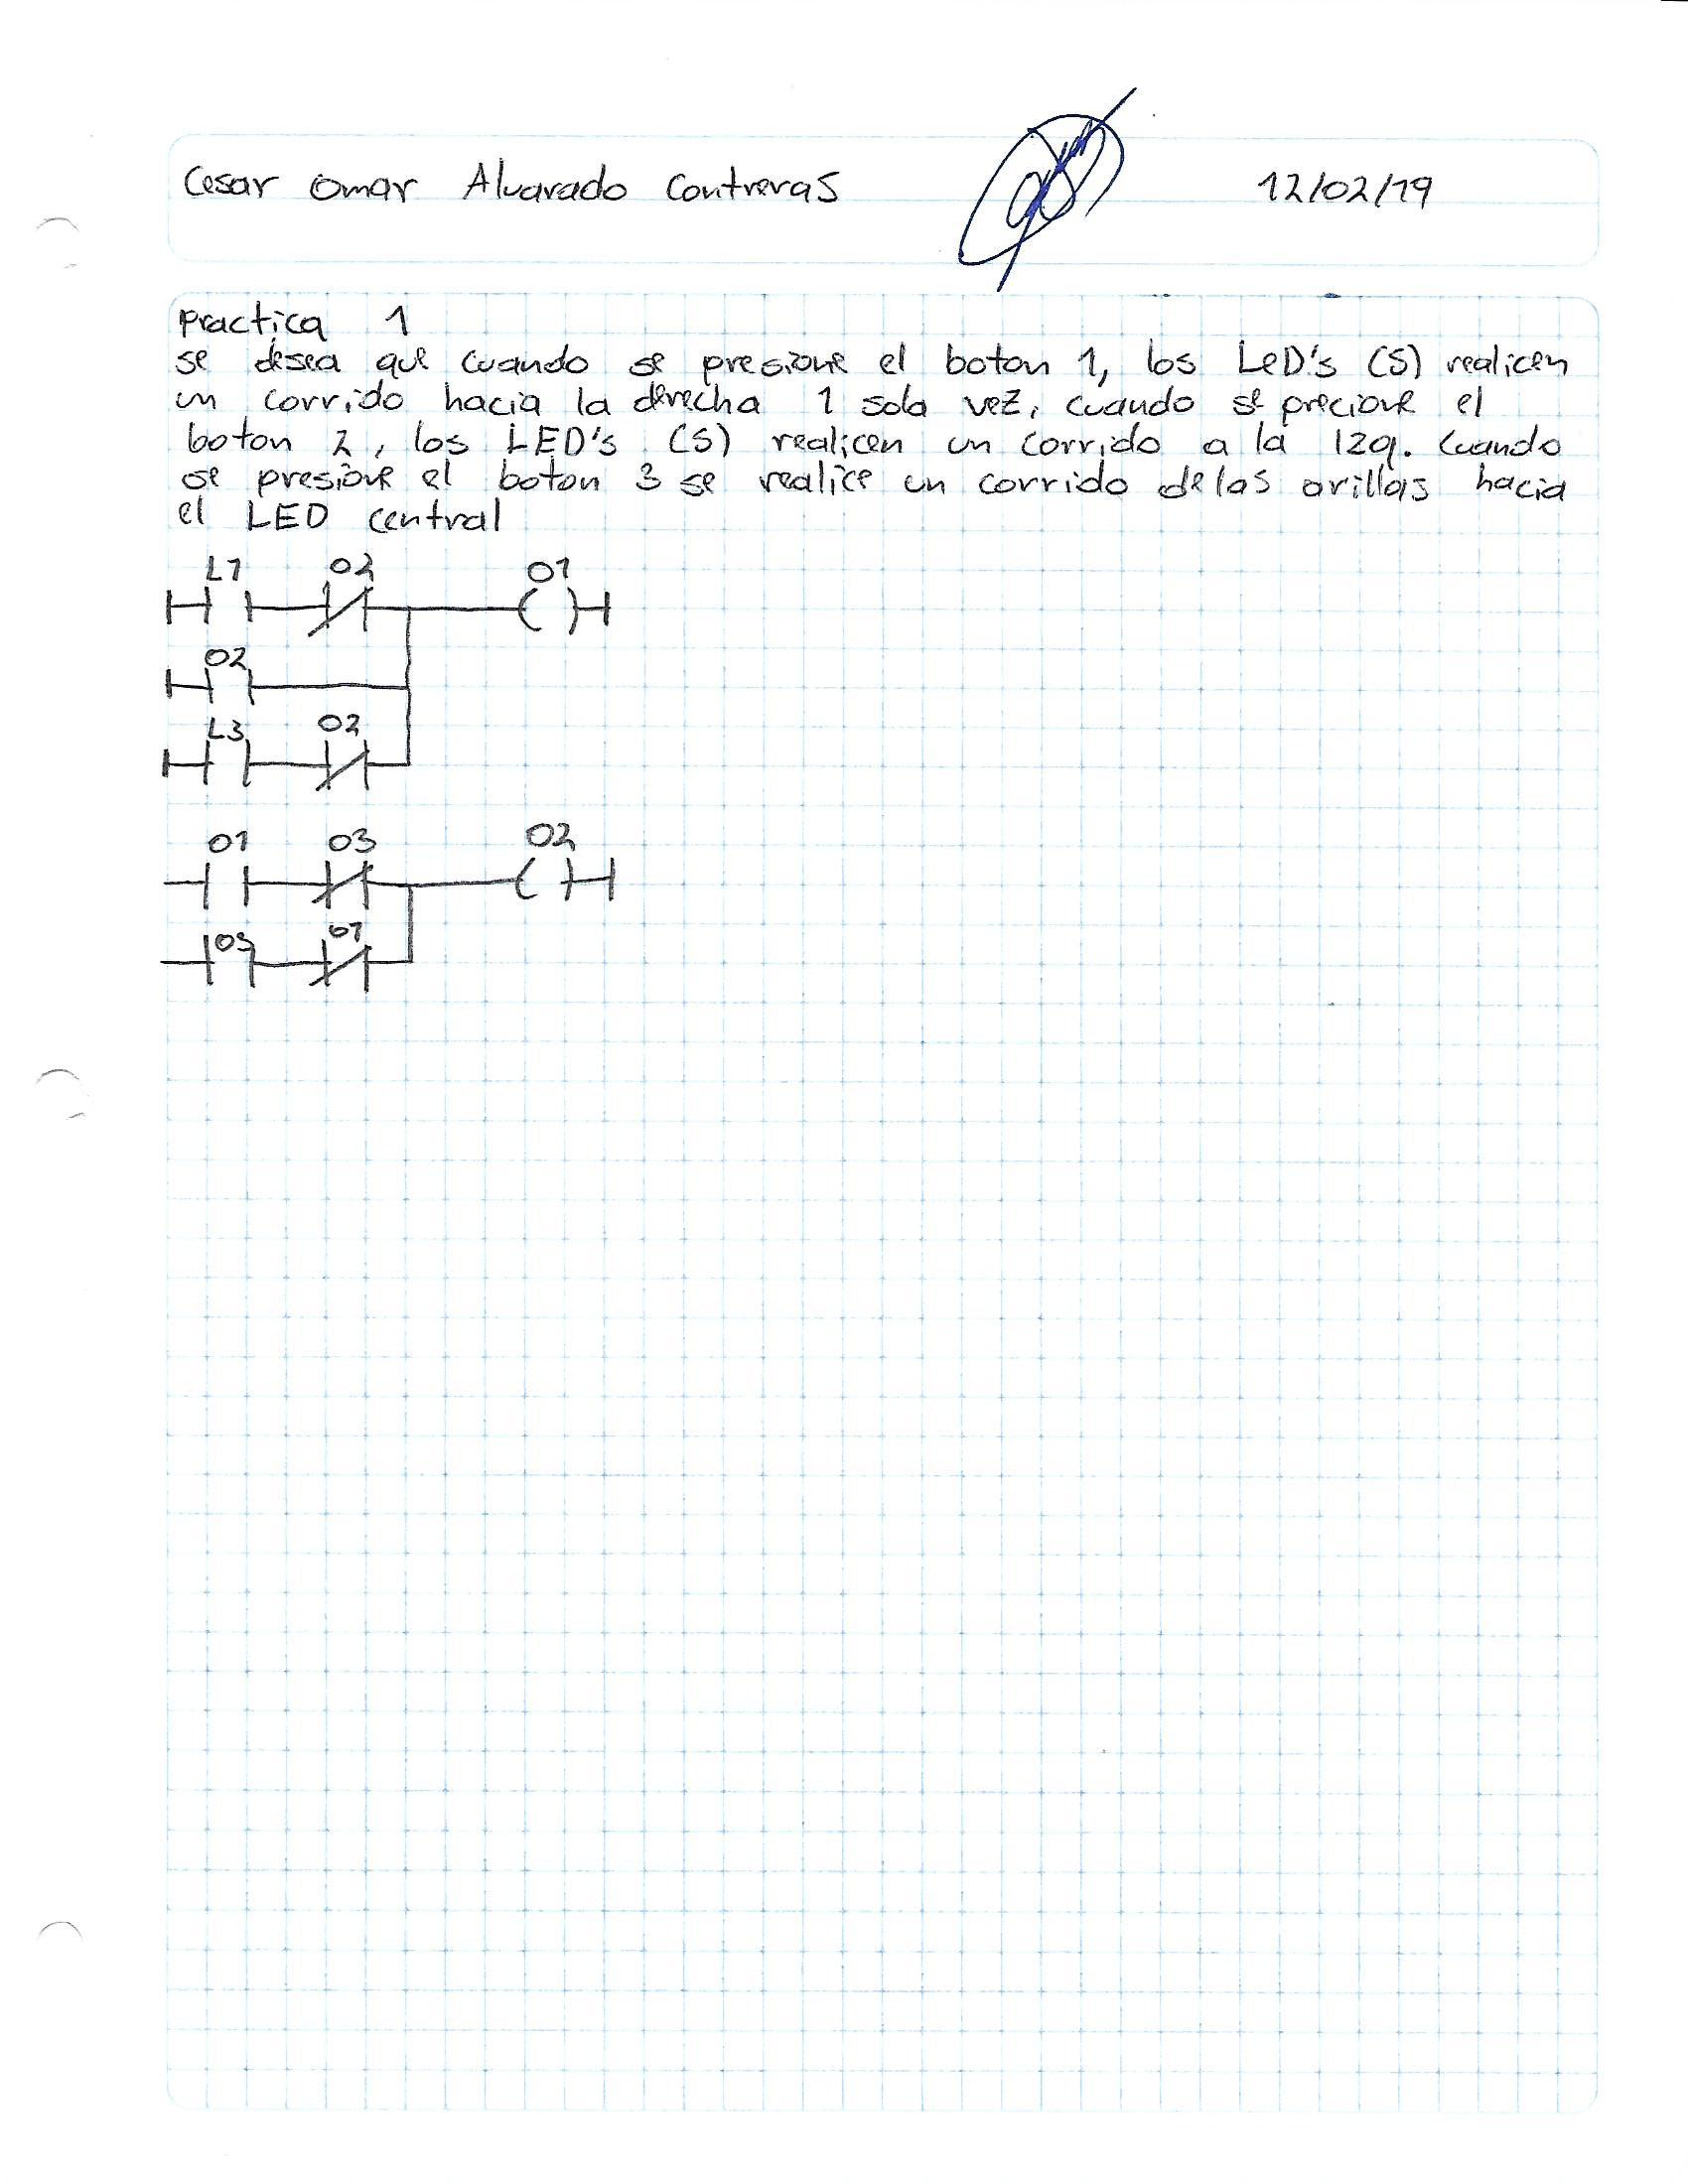 Cesar Omar Alvarado Contreras 12/02/19
Practica 1
se desea que cuando se presione el boton 1, los LED's (5) realicen
un corrido hacia la derecha 1 sola vez, cuando se precione el
boton 2, los LED's (5) realicen un corrido a la izq. Cuando
se presione el boton 3 se realice un corrido de las orillas hacia
el LED central
L1 02 01
02
L3 02
01 03 02
01